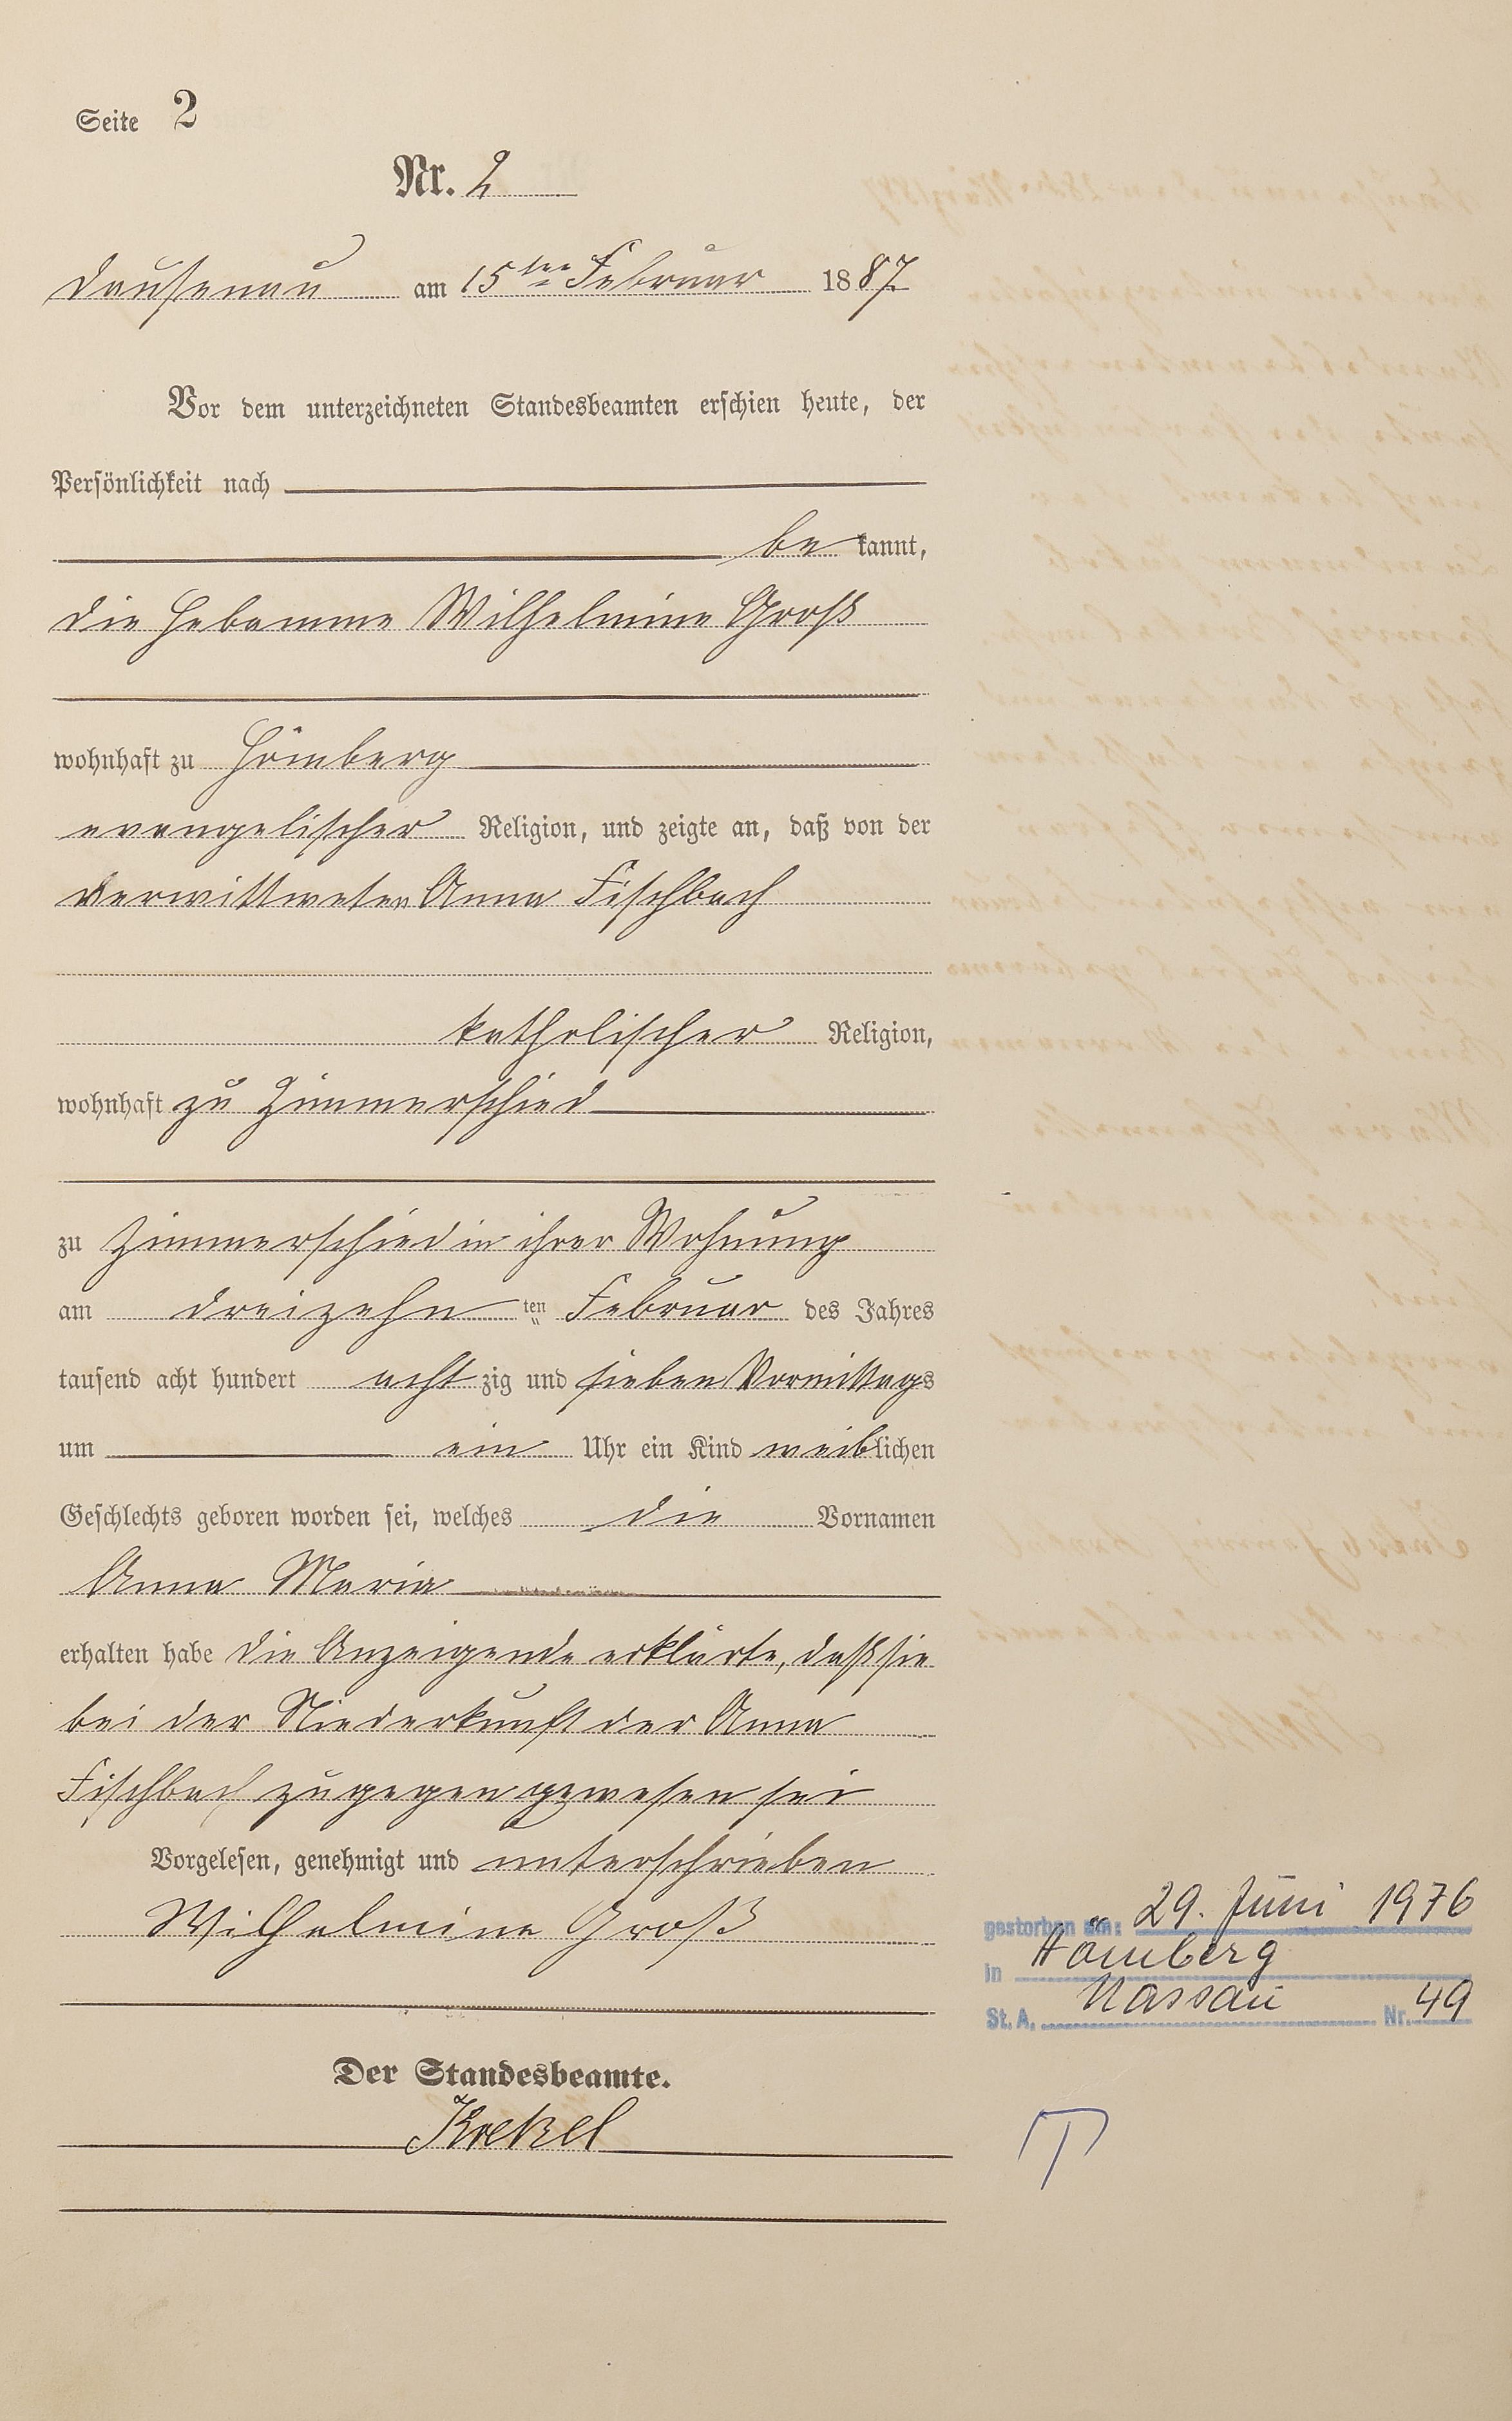 Seite 2
Nr. 2
Dausenau am 15ten Februar 1887
Vor dem unterzeichneten Standesbeamten erschien heute, der
Persönlichkeit nach
be kannt,
die Hebamme Wilhelmine Groß
wohnhaft zu Hömberg
evangelischer Religion, und zeigte an, daß von der
verwittweten Anna Fischbach
katholischer Religion,
wohnhaft zu Zimmerschied
zu Zimmerschied in ihrer Wohnung
am dreizehn ten Februar des Jahres
tausend acht hundert acht zig und sieben Vormittags
um ein Uhr ein Kind weiblichen
Geschlechts geboren worden sei, welches die Vornamen
Anna Maria
erhalten habe die Anzeigende erklärte, daß sie
bei der Niederkunft der Anna
Fischbach zugegen gewesen sei
Vorgelesen, genehmigt und unterschrieben
Wilhelmine Groß
Der Standesbeamte.
Krekel
gestorben am: 29. Juni 1976
in Hömberg
St. A. Nassau Nr. 49